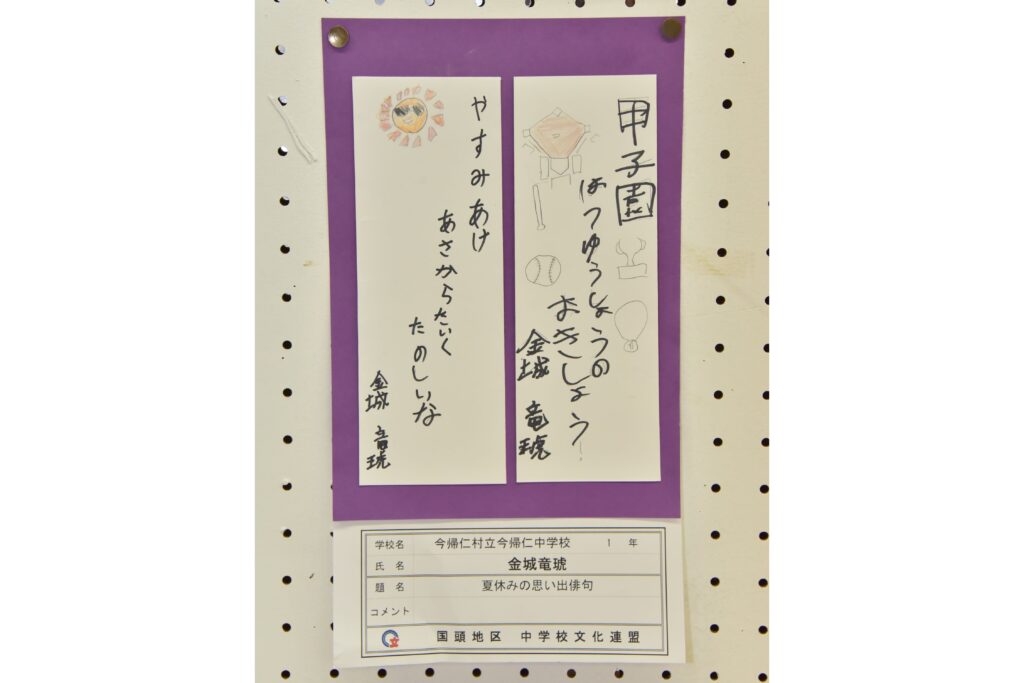 甲子園
はつゆうしょうの
おきしょう
金城 竜琥
やすみあけ
あさからたいく
たのしいな
金城 竜琥
学校名 今帰仁村立今帰仁中学校 1 年
氏 名 金城竜琥
題 名 夏休みの思い出俳句
コメント
国頭地区 中学校文化連盟